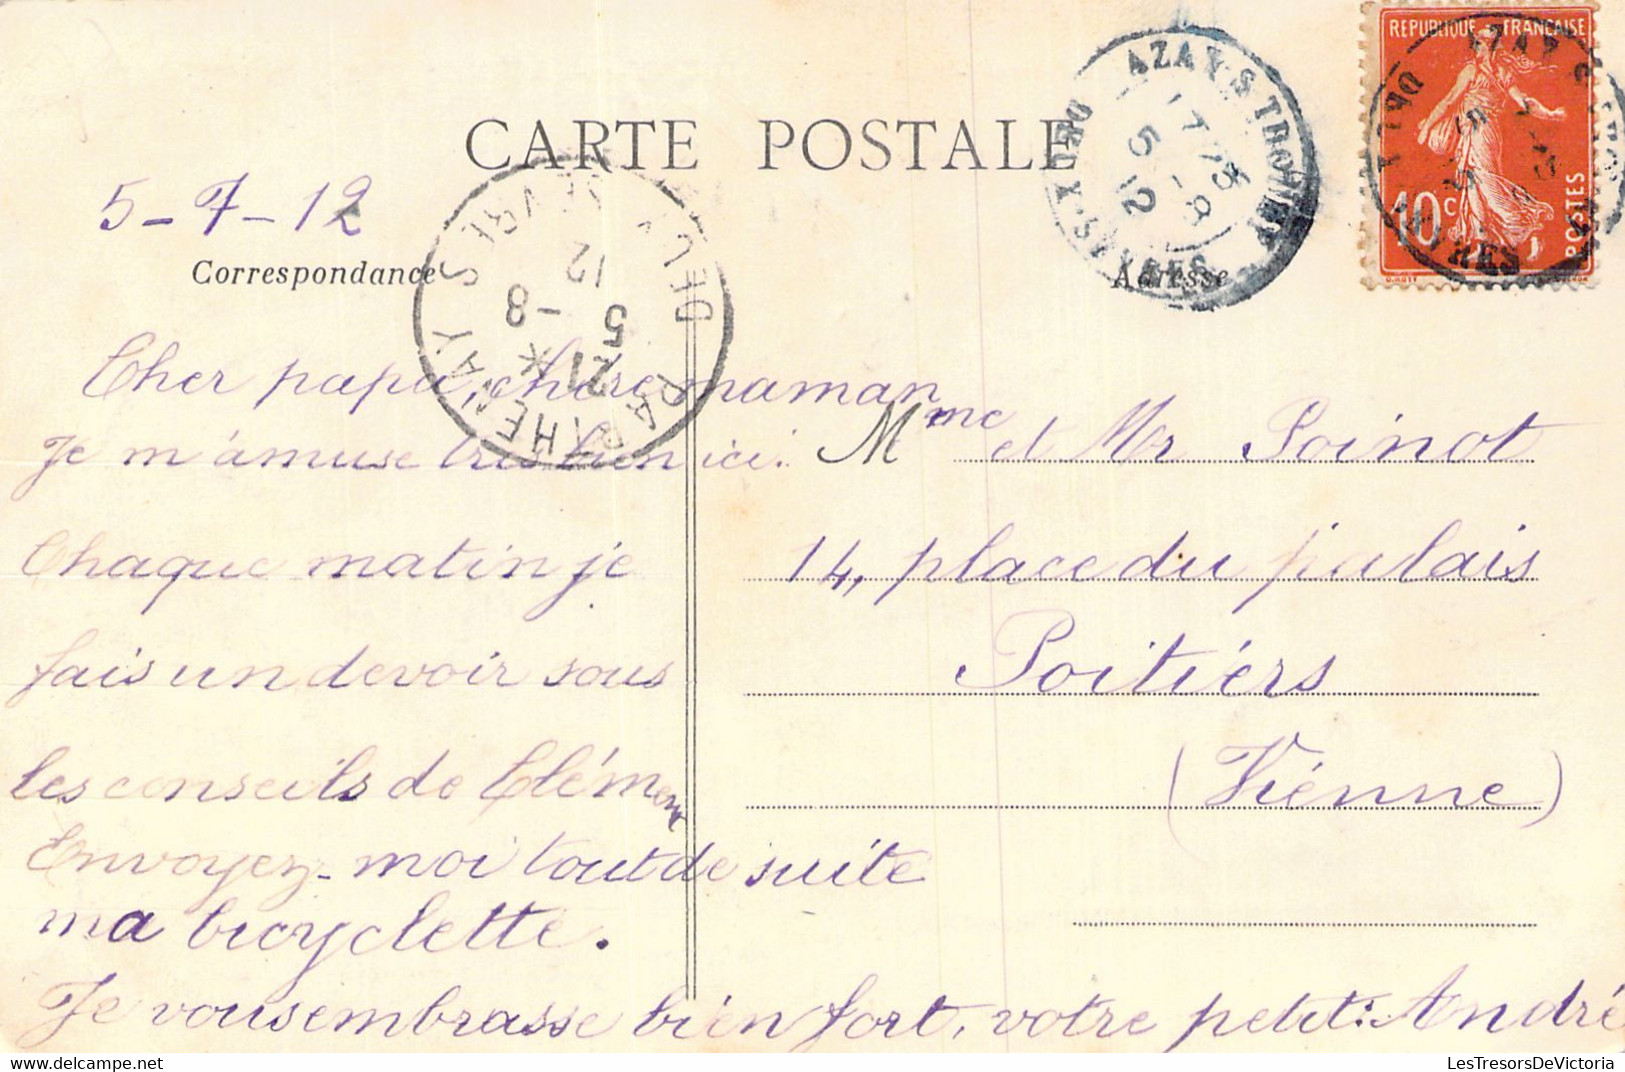 REPUBLIQUE FRANÇAISE
10c
POSTES
AZAY-S-THOUET
5 -8
12
DEUX-SÈVRES
CARTE POSTALE
5-7-12
Correspondance
Adresse
PARTHENAY
DEUX SEVRES
21
5 -8
12
Cher papa, chère maman
Je m'amuse très bien ici.
Chaque matin je
fais un devoir sous
les conseils de Clémence
Envoyez-moi tout de suite
ma bicyclette.
Je vous embrasse bien fort, votre petit: André
Mme et Mr Poinot
14, place du palais
Poitiérs
(Viénne)
LesTresorsDeVictoria